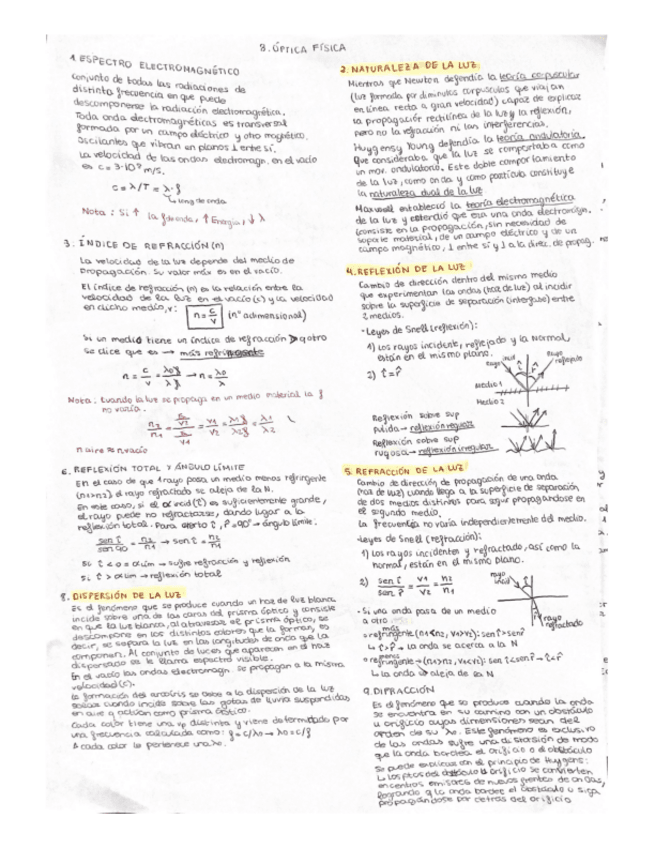 8. ÓPTICA FÍSICA
1. ESPECTRO ELECTROMAGNÉTICO
Conjunto de todas las radiaciones de
distinta frecuencia en que puede
descomponerse la radiación electromagnética.
Toda onda electromagnéticas es transversal
formada por un campo eléctrico y otro magnético.
Oscilantes que vibran en planos ⊥ entre sí.
La velocidad de las ondas electromagn. en el vacío
es c = 3·10⁸ m/s.
c = λ/T = λ·f
long de onda
Nota: Si ↑ la f de onda, ↑ Energía, ↓ λ
3. ÍNDICE DE REFRACCIÓN (n)
La velocidad de la luz depende del medio de
propagación. Su valor máx es en el vacío.
El índice de refracción (n) es la relación entre la
velocidad de la luz en el vacío (c) y la velocidad
en dicho medio, v: n = c/v (nº adimensional)
Si un medio tiene un índice de refracción > q otro
se dice que es → más
n = c/v = λ₀f/λf → n = λ₀/λ
Nota: Cuando la luz se propaga en un medio material la f
no varía.
n₂/n₁ = (c/v₂)/(c/v₁) = v₁/v₂ = λ₁f/λ₂f = λ₁/λ₂
n aire ≈ n vacío
6. REFLEXIÓN TOTAL Y ÁNGULO LÍMITE
En el caso de que 1 rayo pasa un medio menos refringente
(n₁>n₂) el rayo refractado se aleja de la N.
En este caso, si el α incid (î) es suficientemente grande,
el rayo puede no refractarse, dando lugar a la
reflexión total. Para cierto î, r̂=90º → ángulo límite:
sen î / sen 90 = n₂/n₁ → sen î = n₂/n₁
Si î < α lím → sufre refracción y reflexión
Si î > α lím → reflexión total
8. DISPERSIÓN DE LA LUZ
Es el fenómeno que se produce cuando un haz de luz blanca
incide sobre una de las caras del prisma óptico y consiste
en que la luz blanca, al atravesar el prisma óptico, se
descompone en los distintos colores que la forman, es
decir, se separa la luz en las longitudes de onda que la
componen. Al conjunto de luces que aparecen en el haz
dispersado se le llama espectro visible.
En el vacío las ondas electromagn. se propagan a la misma
velocidad (c).
La formación del arcoíris se debe a la dispersión de la luz
cuando incide sobre las gotas de lluvia suspendidas
en aire q actúan como prisma óptico.
Cada color tiene una distinta y viene determinado por
una frecuencia calculada como: f = c/λ₀ → λ₀ = c/f
A cada color le pertenece una λ₀.
2. NATURALEZA DE LA LUZ
Mientras que Newton defendía la teoría corpuscular
(luz formada por diminutos corpúsculos que viajan
en línea recta a gran velocidad) capaz de explicar
la propagación rectilínea de la luz y la reflexión,
pero no la refracción ni las interferencias.
Huygens y Young defendía la teoría ondulatoria.
Que consideraba que la luz se comportaba como
un mov. ondulatorio. Este doble comportamiento
de la luz, como onda y como partícula constituye
la naturaleza dual de la luz
Maxwell estableció la teoría electromagnética
de la luz y entendió que era una onda electromagn.
(consiste en la propagación, sin necesidad de
soporte material, de un campo eléctrico y de un
campo magnético, ⊥ entre sí y ⊥ a la direc. de propag.
4. REFLEXIÓN DE LA LUZ
Cambio de dirección dentro del mismo medio
que experimentan las ondas (haz de luz) al incidir
sobre la superficie de separación (interfase) entre
2 medios.
· Leyes de Snell (reflexión):
1) Los rayos incidente, reflejado y la Normal,
están en el mismo plano.
2) î = r̂
rayo incid
Rayo reflejado
Medio 1
Medio 2
Reflexión sobre sup
pulida → reflexión regular
Reflexión sobre sup
rugosa → reflexión irregular
5. REFRACCIÓN DE LA LUZ
Cambio de dirección de propagación de una onda
(haz de luz) cuando llega a la superficie de separación
de dos medios distintos para seguir propagándose en
el segundo medio.
La frecuencia no varía independientemente del medio.
·Leyes de Snell (refracción):
1) Los rayos incidentes y refractado, así como la
normal, están en el mismo plano.
2) sen î / sen r̂ = v₁/v₂ = n₂/n₁
rayo incid
rayo refractado
· Si una onda pasa de un medio
a otro
más
refringente (n₁<n₂, v₁>v₂): sen î > sen r̂
↳ î > r̂ → la onda se acerca a la N
menos
refringente → (n₁>n₂, v₁<v₂): sen î < sen r̂ → î < r̂
↳ La onda se aleja de la N
9. DIFRACCIÓN
Es el fenómeno que se produce cuando la onda
se encuentra en su camino con un obstáculo
u orificio cuyas dimensiones sean del
orden de su λ₀. Este fenómeno es exclusivo
de las ondas sufre una distorsión de modo
que la onda bordea el orificio o el obstáculo
Se puede explicar con el principio de Huygens:
↳ Los ptos del obstáculo u orificio se convierten
en centros emisores de nuevos frentes de ondas,
logrando q la onda bordee el obstáculo u siga
propagándose por detrás del orificio